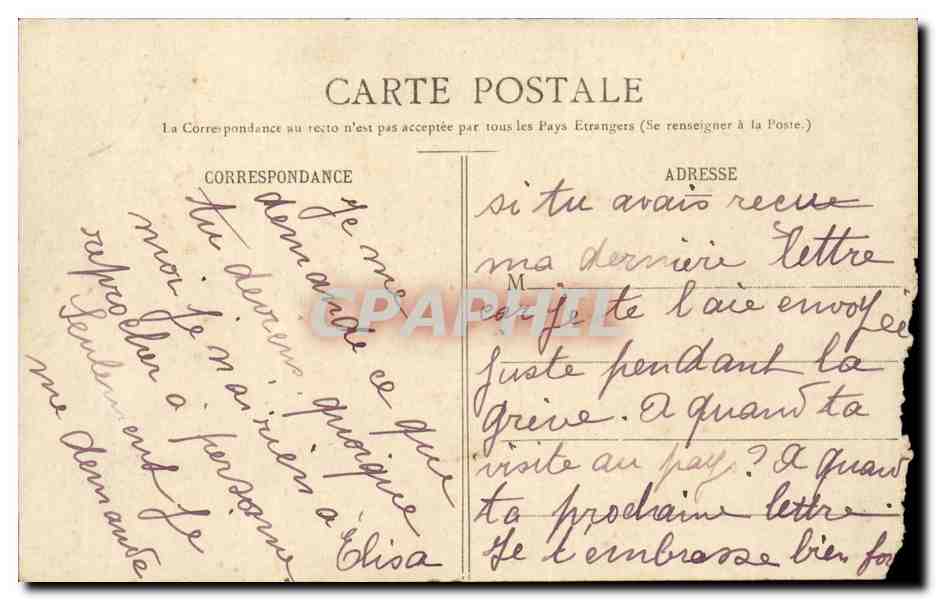 CARTE POSTALE
La Correspondance au recto n'est pas acceptée par tous les Pays Etrangers (Se renseigner à la Poste.)
CORRESPONDANCE
Je me
demande ce que
tu deviens quoique
moi je n'ai rien à
raprocher à personne
Seulement je
me demande
Elisa
ADRESSE
M
si tu avais recue
ma dernière lettre
car je te l'aie envoyee
juste pendant la
grève. A quand ta
visite au pays? A quand
ta prochaine lettre.
Je t'embrasse bien for
CPAPHIL